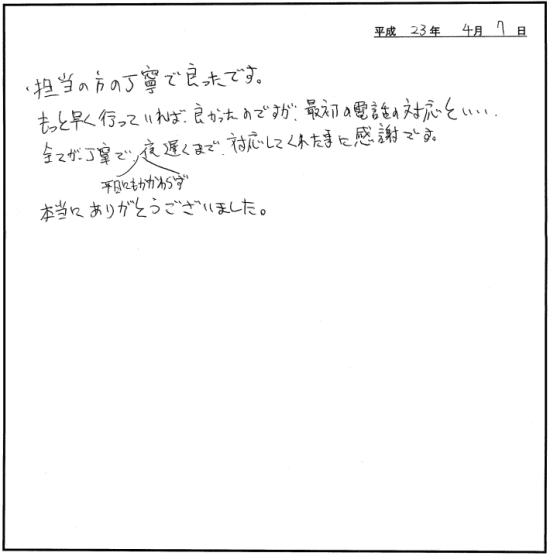 平成 23年 4月 7日
・担当の方の丁寧で良ったです。
もっと早く行っていれば、良かったのですが、最初の電話の対応といい、、
全てが丁寧で、夜遅くまで、対応してくれた事に感謝です。
平日にもかかわらず
本当にありがとうございました。